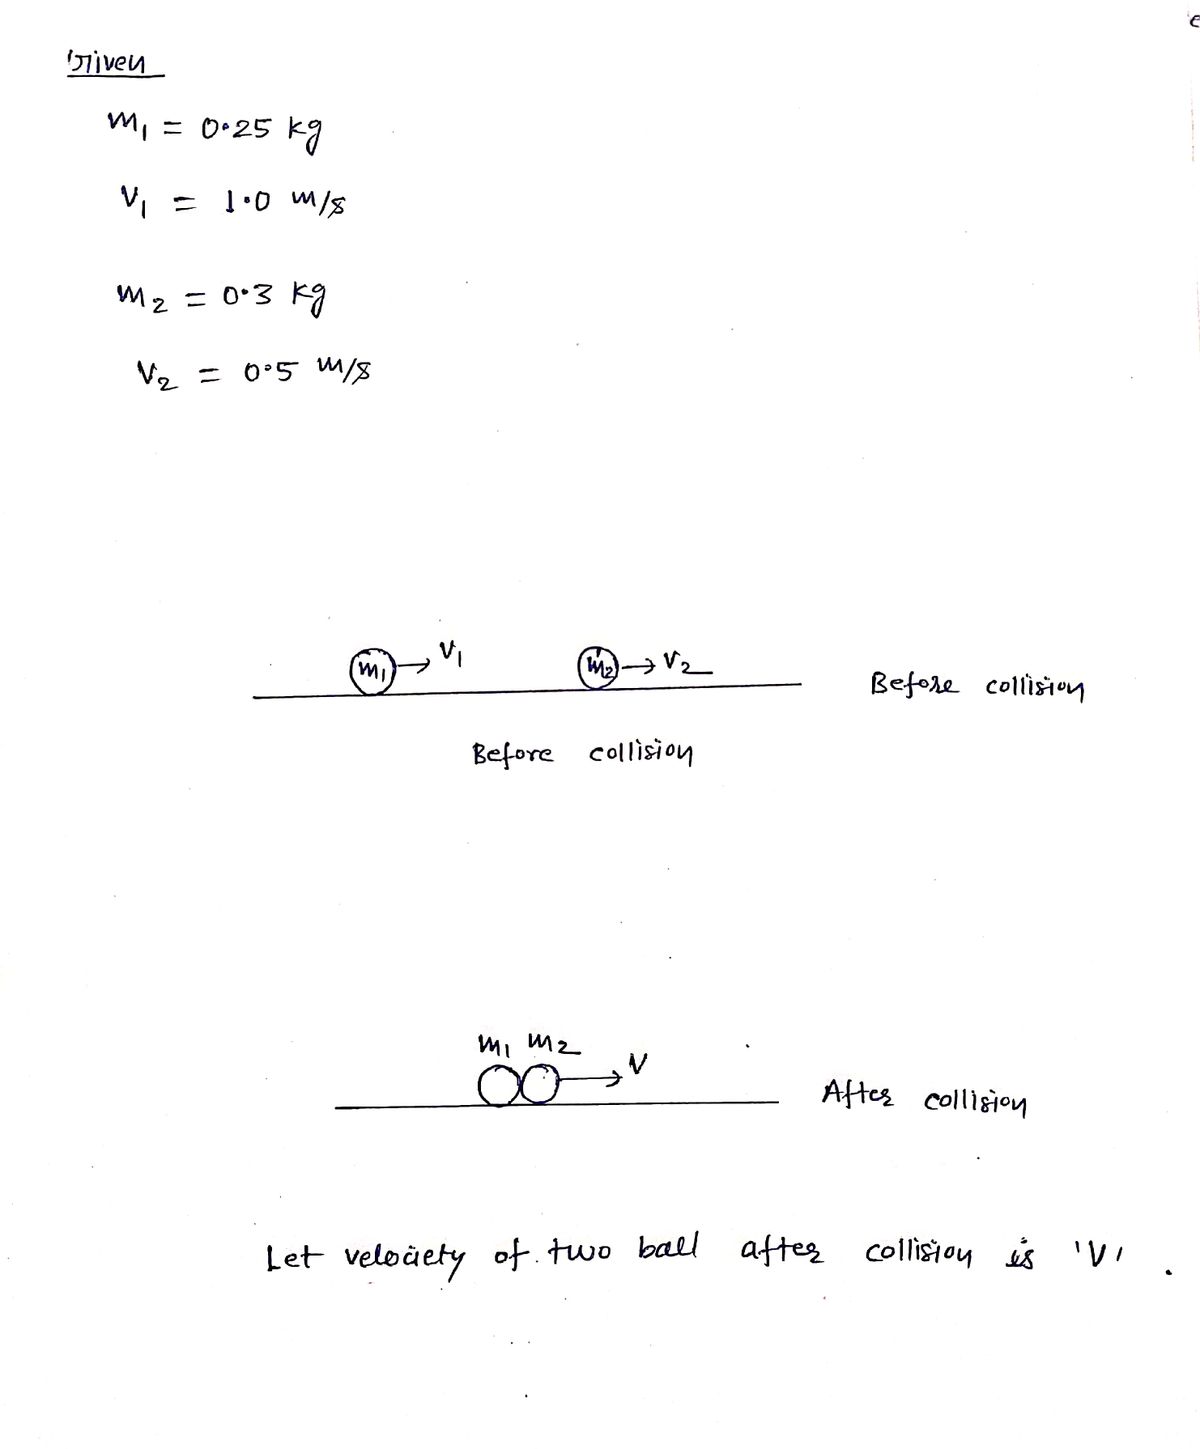 Given
m1 = 0.25 kg
V1 = 1.0 m/s
m2 = 0.3 kg
V2 = 0.5 m/s
m1 V1 m2 V2
Before collision
Before collision
m1 m2
V
After collision
Let velociety of two ball after collision is 'V' .